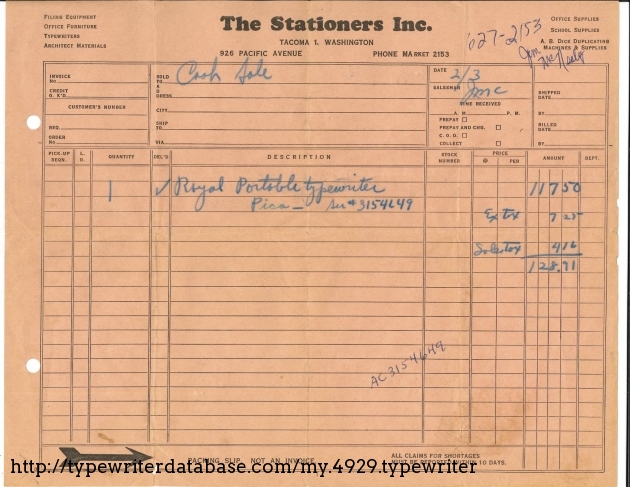 FILING EQUIPMENT
OFFICE FURNITURE
TYPEWRITERS
ARCHITECT MATERIALS
The Stationers Inc.
TACOMA 1, WASHINGTON
926 PACIFIC AVENUE PHONE MARKET 2153
627-2153
Jim
McNeely
OFFICE SUPPLIES
SCHOOL SUPPLIES
A. B. DICK DUPLICATING
MACHINES & SUPPLIES
INVOICE
NO.
CREDIT
O. K'D
CUSTOMER'S NUMBER
REQ.
ORDER
NO.
SOLD
TO Cash Sale
ADDRESS
CITY
SHIP
TO
VIA
DATE 2/3
SALESMAN Jmc
TIME RECEIVED
A. M. P. M.
PREPAY
PREPAY AND CHG.
C. O. D.
COLLECT
SHIPPED
DATE
BY
BILLED
DATE
BY
PICK-UP
SEQN.
L.
O.
QUANTITY
DEL'D
DESCRIPTION
STOCK
NUMBER
PRICE
@ PER
AMOUNT
DEPT.
1 ✓ Royal Portable typewriter 117 50
Pica — Ser #3154649
Ex tx 7 25
Sales tax 4 16
128.91
AC3154649
PACKING SLIP, NOT AN INVOICE
ALL CLAIMS FOR SHORTAGES
MUST BE REPORTED WITHIN 10 DAYS.
http://typewriterdatabase.com/my.4929.typewriter